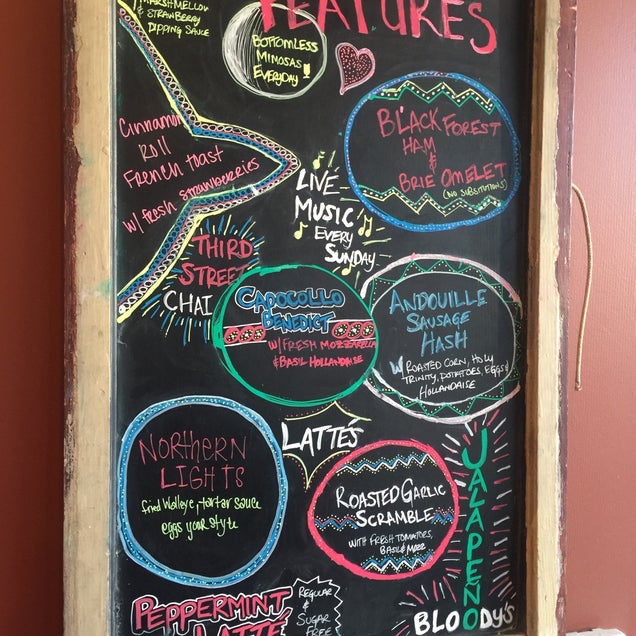 FEATURES
MARSHMELLOW
& STRAWBERRY
DIPPING SAUCE
BOTTOMLESS
MIMOSAS
EVERYDAY!
Cinnamon
Roll
French toast
w/ fresh strawberries
BLACK FOREST
HAM
&
BRIE OMELET
(NO SUBSTITUTIONS)
LIVE
MUSIC
EVERY
SUNDAY
THIRD
STREET
CHAI
CAPOCOLLO
BENEDICT
W/ FRESH MOZZARELLA
& BASIL HOLLANDAISE
ANDOUILLE
SAUSAGE
HASH
W/ ROASTED CORN, HOLY
TRINITY, POTATOES, EGGS &
HOLLANDAISE
LATTE'S
NORTHERN
LIGHTS
fried Walleye, tartar sauce
eggs your style
ROASTED GARLIC
SCRAMBLE
WITH FRESH TOMATOES,
BASIL & MOZZ
JALAPENO
BLOODY'S
PEPPERMINT
LATTE
REGULAR
&
SUGAR
FREE